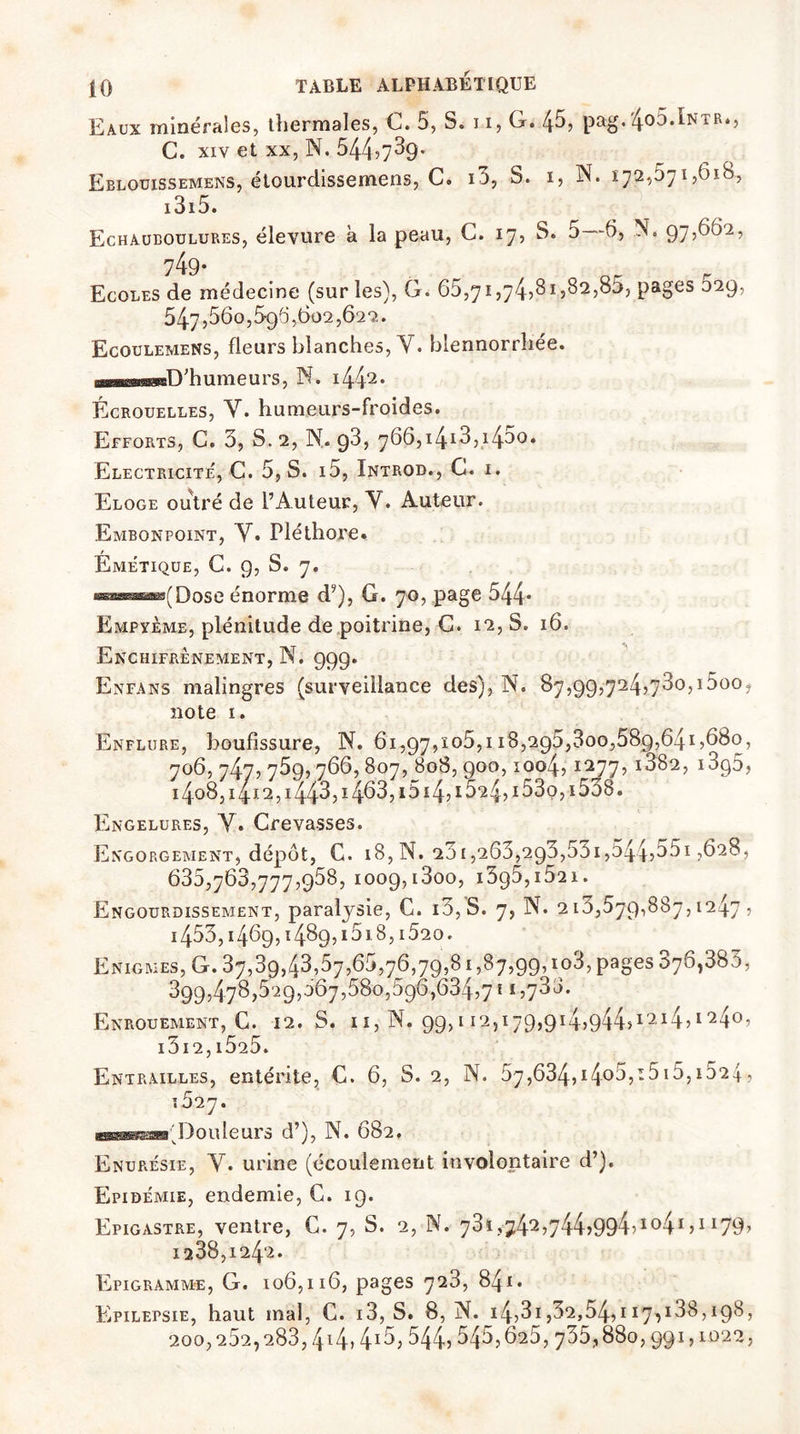 10 TABLE ALPHABÉTIQUE
Eaux minérales, thermales, C. 5, S. 11, G. 45, pag. 405. Intr.,
C. xiv et xx, N. 544,739.
Eblouissemens, étourdissemens, C. 13, S. 1, N. 172,571,618,
1315.
Echauboulures, élevure à la peau, C. 17, S. 5—6, N. 97,662,
749.
Ecoles de médecine (sur les), G. 65,71,74,81,82,85, pages 529,
547,560,596,602,622.
Ecoulemens, fleurs blanches, V. blennorrhée.
——D'humeurs, N. 1442.
Écrouelles, V. humeurs-froides.
Efforts, C. 3, S. 2, N. 93, 766,1413,1450.
Electricité, C. 5, S. 15, Introd., C. 1.
Eloge outré de l'Auteur, V. Auteur.
Embonpoint, V. Pléthore.
Émétique, C. 9, S. 7.
——(Dose énorme d'), G. 70, page 544.
Empyème, plénitude de poitrine, C. 12, S. 16.
Enchifrènement, N. 999.
Enfans malingres (surveillance des), N. 87,99,724,730,1500,
note 1.
Enflure, boufissure, N. 61,97,105,118,295,300,589,641,680,
706, 747, 759, 766, 807, 808, 900, 1004, 1277, 1382, 1395,
1408,1412,1443,1463,1514,1524,1530,1538.
Engelures, V. Crevasses.
Engorgement, dépôt, C. 18, N. 231,263,293,531,544,551,628,
635,763,777,958, 1009,1300, 1395,1521.
Engourdissement, paralysie, C. 13, S. 7, N. 213,579,887,1247,
1453,1469,1489,1518,1520.
Enigmes, G. 37,39,43,57,65,76,79,81,87,99,103, pages 376,383,
399,478,529,567,580,596,634,711,733.
Enrouement, C. 12. S. 11, N. 99,112,179,914,944,1214,1240,
1312,1525.
Entrailles, entérite, C. 6, S. 2, N. 57,634,1405,1515,1524,
1527.
——(Douleurs d'), N. 682.
Enurésie, V. urine (écoulement involontaire d').
Epidémie, endemie, C. 19.
Epigastre, ventre, C. 7, S. 2, N. 731,742,744,994,1041,1179,
1238,1242.
Epigramme, G. 106,116, pages 723, 841.
Epilepsie, haut mal, C. 13, S. 8, N. 14,31,32,54,117,138,198,
200,252,283,414,415,544,545,625,735,880,991,1022,